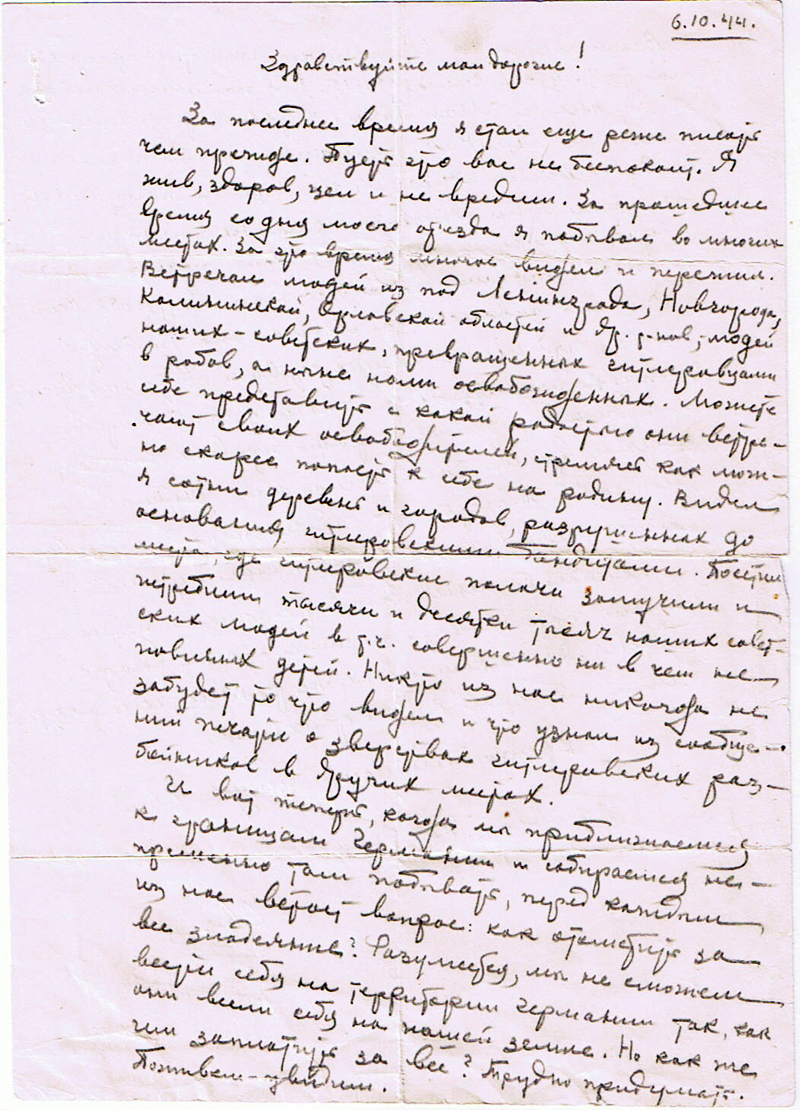 6.10.44.
Здравствуйте мои дорогие!
За последнее время я стал еще реже писать
чем прежде. Пусть это вас не беспокоит. Я
жив, здоров, цел и не вредим. За прошедшее
время со дня моего отъезда я побывал во многих
местах. За это время многое видел и пережил.
Встречал людей из под Ленинграда, Новгорода,
Калининской, Орловской областей и др. р-нов, людей
наших-советских, превращенных гитлеровцами
в рабов, а ныне нами освобожденных. Можете
себе представить с какой радостью они встре-
чают своих освободителей, стремятся как мож-
но скорее попасть к себе на родину. Видел
я сотни деревень и городов, разрушенных до
основания гитлеровскими бандитами. Посетил
места, где гитлеровские палачи замучили и
истребили тысячи и десятки тысяч наших совет-
ских людей в т.ч. совершенно ни в чем не
повинных детей. Никто из нас никогда не
забудет то что видел и что узнал из сообще-
ний печати о зверствах гитлеровских раз-
бойников в других местах.
И вот теперь, когда мы приближаемся
к границам Германии и собираемся не-
пременно там побывать, перед каждым
из нас встает вопрос: как отомстить за
все злодеяние? Разумеется, мы не сможем
вести себя на территории Германии так, как
они вели себя на нашей земле. Но как же
им заплатить за всё? Трудно придумать.
Поживем-увидим.